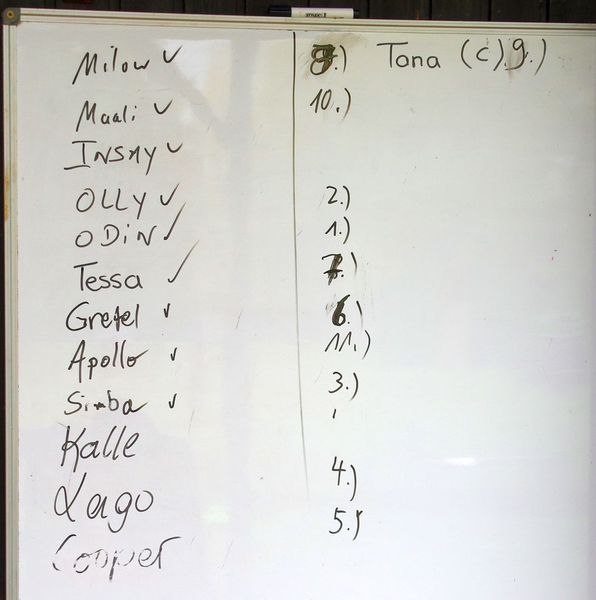 Milow ✓ 8.) Tona (c) 9.)
Maali ✓ 10.)
INSMY ✓
OLLY ✓ 2.)
ODiN ✓ 1.)
Tessa ✓ 7.)
Gretel ✓ 6.)
Apollo ✓ 11.)
Simba ✓ 3.)
Kalle
Lago 4.)
Cooper 5.)